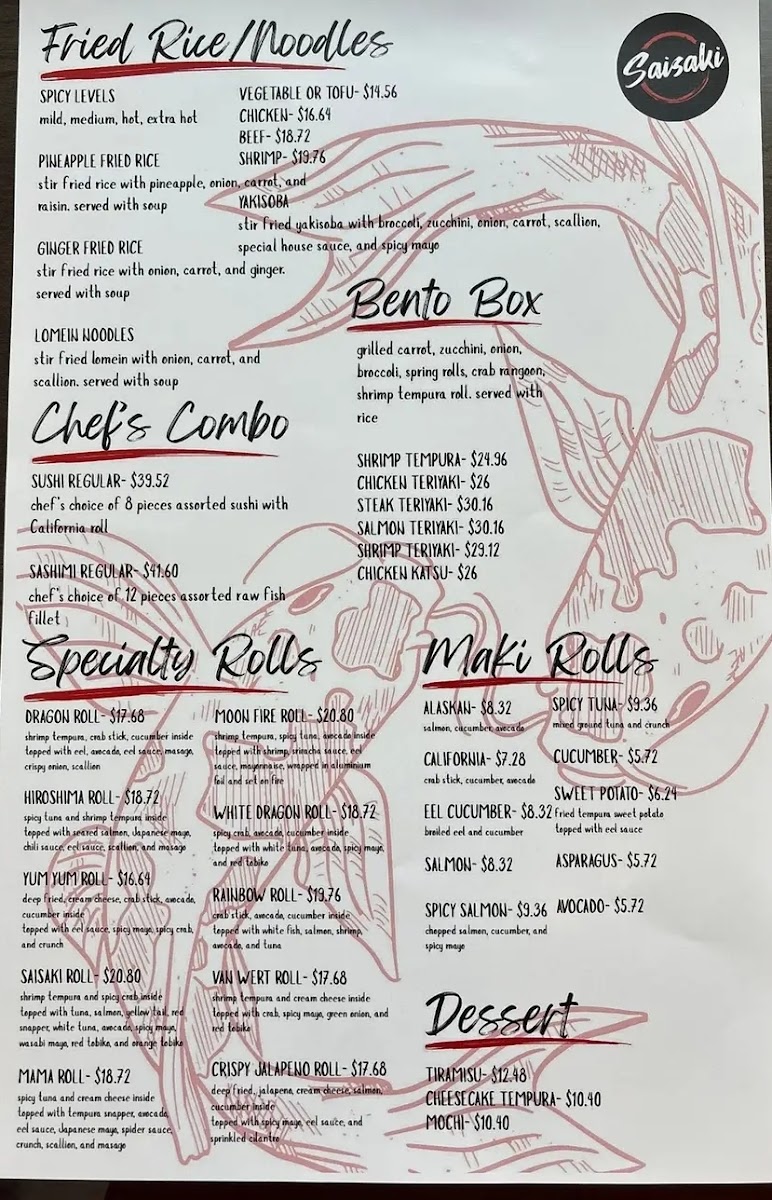 Fried Rice/Noodles
Saisaki
SPICY LEVELS
mild, medium, hot, extra hot
PINEAPPLE FRIED RICE
stir fried rice with pineapple, onion, carrot, and
raisin. served with soup
GINGER FRIED RICE
stir fried rice with onion, carrot, and ginger.
served with soup
LOMEIN NOODLES
stir fried lomein with onion, carrot, and
scallion. served with soup
VEGETABLE OR TOFU- $14.56
CHICKEN- $16.64
BEEF- $18.72
SHRIMP- $19.76
YAKISOBA
stir fried yakisoba with broccoli, zucchini, onion, carrot, scallion,
special house sauce, and spicy mayo
Bento Box
grilled carrot, zucchini, onion,
broccoli, spring rolls, crab rangoon,
shrimp tempura roll. served with
rice
SHRIMP TEMPURA- $24.96
CHICKEN TERIYAKI- $26
STEAK TERIYAKI- $30.16
SALMON TERIYAKI- $30.16
SHRIMP TERIYAKI- $29.12
CHICKEN KATSU- $26
Chef's Combo
SUSHI REGULAR- $39.52
chef's choice of 8 pieces assorted sushi with
California roll
SASHIMI REGULAR- $41.60
chef's choice of 12 pieces assorted raw fish
fillet
Specialty Rolls
DRAGON ROLL- $17.68
shrimp tempura, crab stick, cucumber inside
topped with eel, avocado, eel sauce, masago,
crispy onion, scallion
HIROSHIMA ROLL- $18.72
spicy tuna and shrimp tempura inside
topped with seared salmon, Japanese mayo,
chili sauce, eel sauce, scallion, and masago
YUM YUM ROLL- $16.64
deep fried, cream cheese, crab stick, avocado,
cucumber inside
topped with eel sauce, spicy mayo, spicy crab,
and crunch
SAISAKI ROLL- $20.80
shrimp tempura and spicy crab inside
topped with tuna, salmon, yellow tail, red
snapper, white tuna, avocado, spicy mayo,
wasabi mayo, red tobiko, and orange tobiko
MAMA ROLL- $18.72
spicy tuna and cream cheese inside
topped with tempura snapper, avocado,
eel sauce, Japanese mayo, spider sauce,
crunch, scallion, and masago
MOON FIRE ROLL- $20.80
shrimp tempura, spicy tuna, avocado inside
topped with shrimp, sriracha sauce, eel
sauce, mayonnaise, wrapped in aluminium
foil and set on fire
WHITE DRAGON ROLL- $18.72
spicy crab, avocado, cucumber inside
topped with white tuna, avocado, spicy mayo,
and red tobiko
RAINBOW ROLL- $19.76
crab stick, avocado, cucumber inside
topped with white fish, salmon, shrimp,
avocado, and tuna
VAN WERT ROLL- $17.68
shrimp tempura and cream cheese inside
topped with crab, spicy mayo, green onion, and
red tobiko
CRISPY JALAPENO ROLL- $17.68
deep fried, jalapeno, cream cheese, salmon,
cucumber inside
topped with spicy mayo, eel sauce, and
sprinkled cilantro
Maki Rolls
ALASKAN- $8.32
salmon, cucumber, avocado
CALIFORNIA- $7.28
crab stick, cucumber, avocado
EEL CUCUMBER- $8.32
broiled eel and cucumber
SALMON- $8.32
SPICY SALMON- $9.36
chopped salmon, cucumber, and
spicy mayo
SPICY TUNA- $9.36
mixed ground tuna and crunch
CUCUMBER- $5.72
SWEET POTATO- $6.24
fried tempura sweet potato
topped with eel sauce
ASPARAGUS- $5.72
AVOCADO- $5.72
Dessert
TIRAMISU- $12.48
CHEESECAKE TEMPURA- $10.40
MOCHI- $10.40